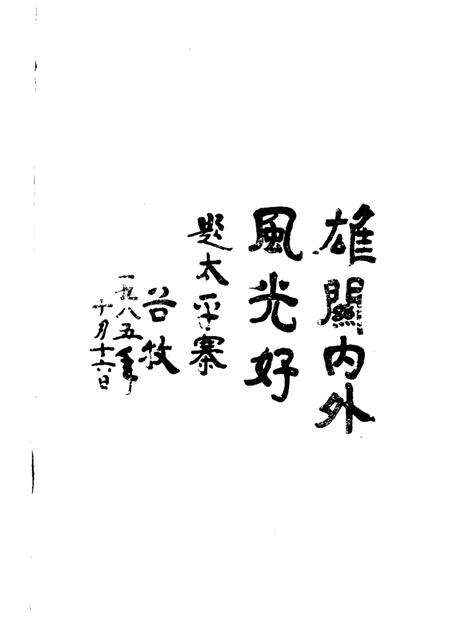 雄關内外
風光好
题太平寨
谷牧
一九八五年
十月十六日